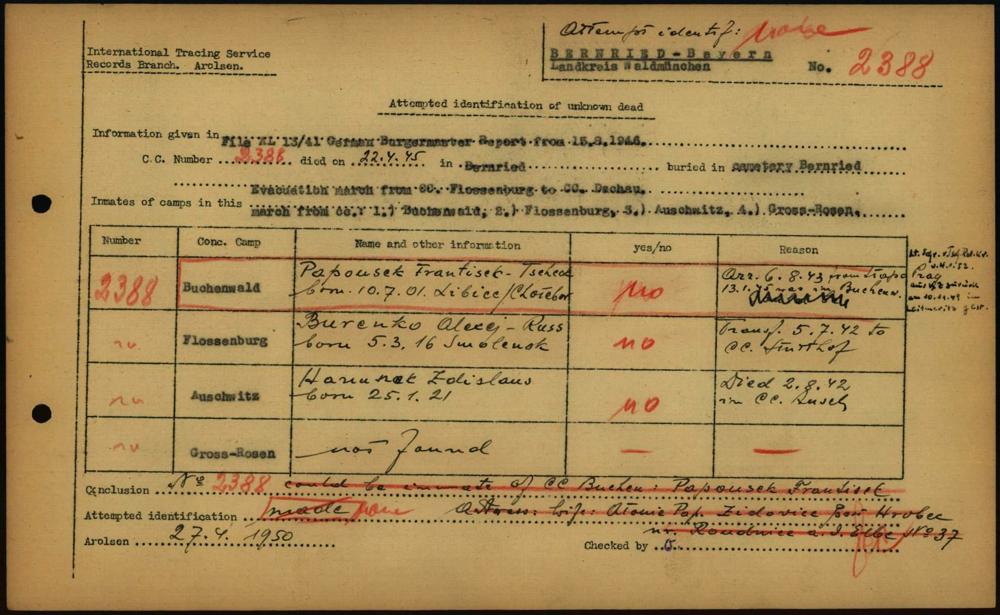 Attempt identif: none
International Tracing Service
Records Branch. Arolsen.
BERNRIED-Bayern
Landkreis Waldmünchen
No. 2388
Attempted identification of unknown dead
Information given in File KL 13/41 German Burgermaster Report from 15.8.1946.
C.C. Number 2388 died on 22.4.45 in Bernried buried in cemetery Bernried
Evacuation march from CC. Flossenburg to CC. Dachau.
Inmates of camps in this march from CC.: 1.) Buchenwald, 2.) Flossenburg, 3.) Auschwitz, 4.) Gross-Rosen.
Number Conc. Camp Name and other information yes/no Reason
2388 Buchenwald Papousek Frantisek - Tschech no Arr. 6.8.43 from Stapo Prag
born 10.7.01 Libice/Chotebor 13.1.45 was in Buchenw.
nu Flossenburg Burenko Alexej - Russ no Transf. 5.7.42 to
born 5.3.16 Smolensk CC. Stutthof
nu Auschwitz Hanusek Zdislaus no Died 2.8.42
born 25.1.21 in CC. Ausch
nu Gross-Rosen not found — —
Conclusion No 2388 could be inmate of CC Buchen: Papousek Frantisek
Attempted identification made none Adress: wife: Pap. Zidovice bei Hrobce
nr. Roudnice a.d. Elbe No 37
Arolsen 27.4.1950 Checked by